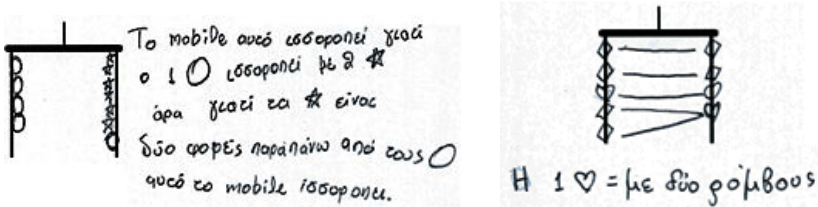 Το mobile αυτό ισσοροπεί γιατί
ο 1 ισσοροπεί με 2 ☆
άρα γιατί τα ☆ είνας
δύο φορές παραπάνω από τους
αυτό το mobile ισσοροπει.
Η 1 ♡ = με δύο ρόμβους